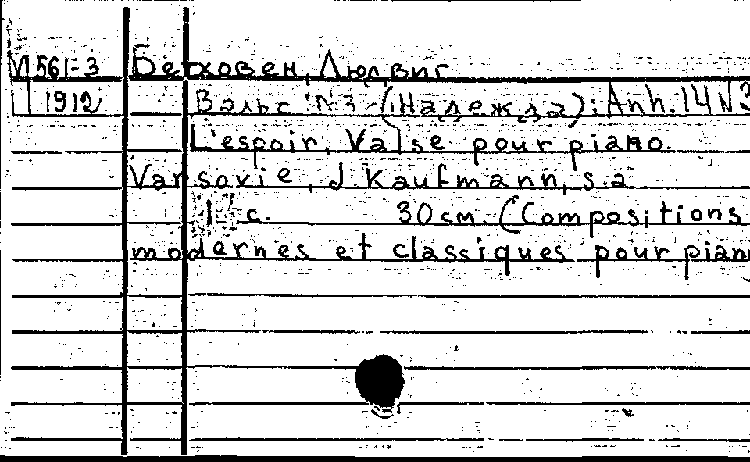 И 561-3 Бетховен, Людвиг
1912 Вальс №3 (Надежда); Anh. 14 N3
L'espoir, Valse pour piano.
Varsovie, J. Kaufmann, s.a
с. 30 см. (Compositions
modernes et classiques pour pian